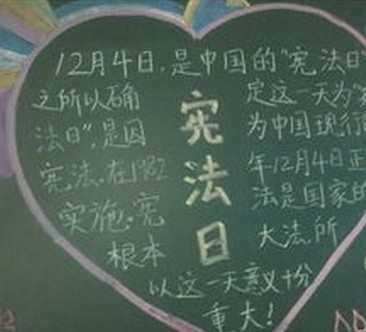 12月4日,是中国的"宪法日"
之所以确 定这一天为"
法日",是因 为中国现行
宪法,在1982 年12月4日正
实施。宪 法是国家的
根本 大法所
以这一天意义十份
重大!
宪法日